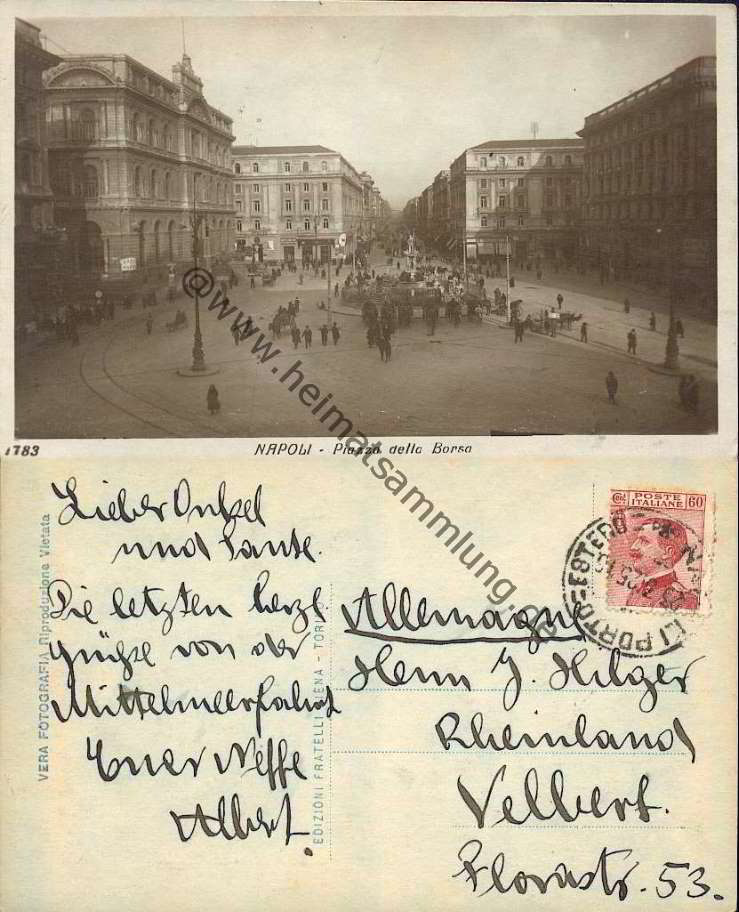 @www.heimatsammlung.de
1783
NAPOLI - Piazza della Borsa
Lieber Onkel
und Tante.
Die letzten herzl.
Grüße von der
Mittelmeerfahrt
Euer Neffe
Albert.
VERA FOTOGRAFIA Riproduzione Vietata
EDIZIONI FRATELLI - TORI
POSTE
ITALIANE
60
PORTO=ESTERO
Allemagne
Herrn J. Hilger
Rheinland
Velbert.
Florastr. 53.